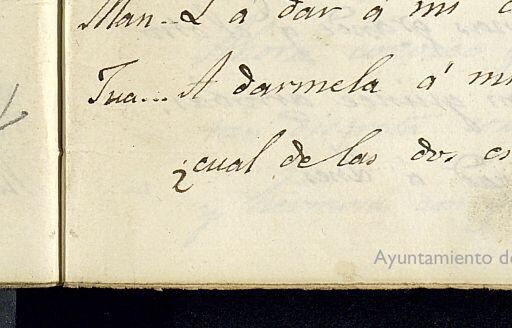 Man.. L a dar á mi
Jua... A darmela á mi
¿cual de las dos es
Ayuntamiento de